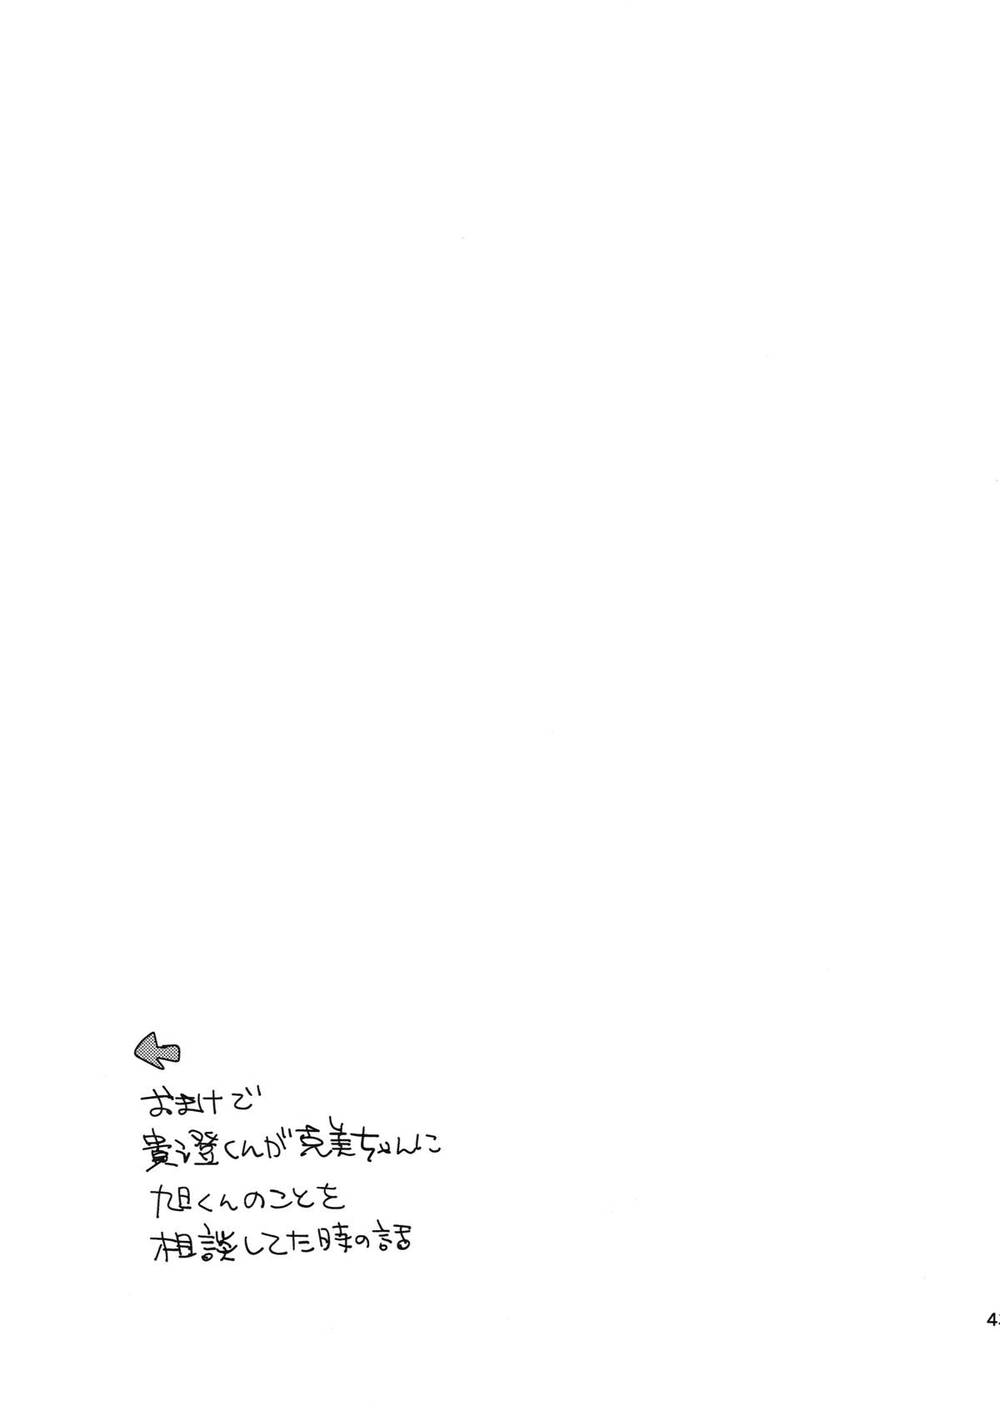 おまけで
貴澄くんが克美ちゃんに
旭くんのことを
相談してた時の話